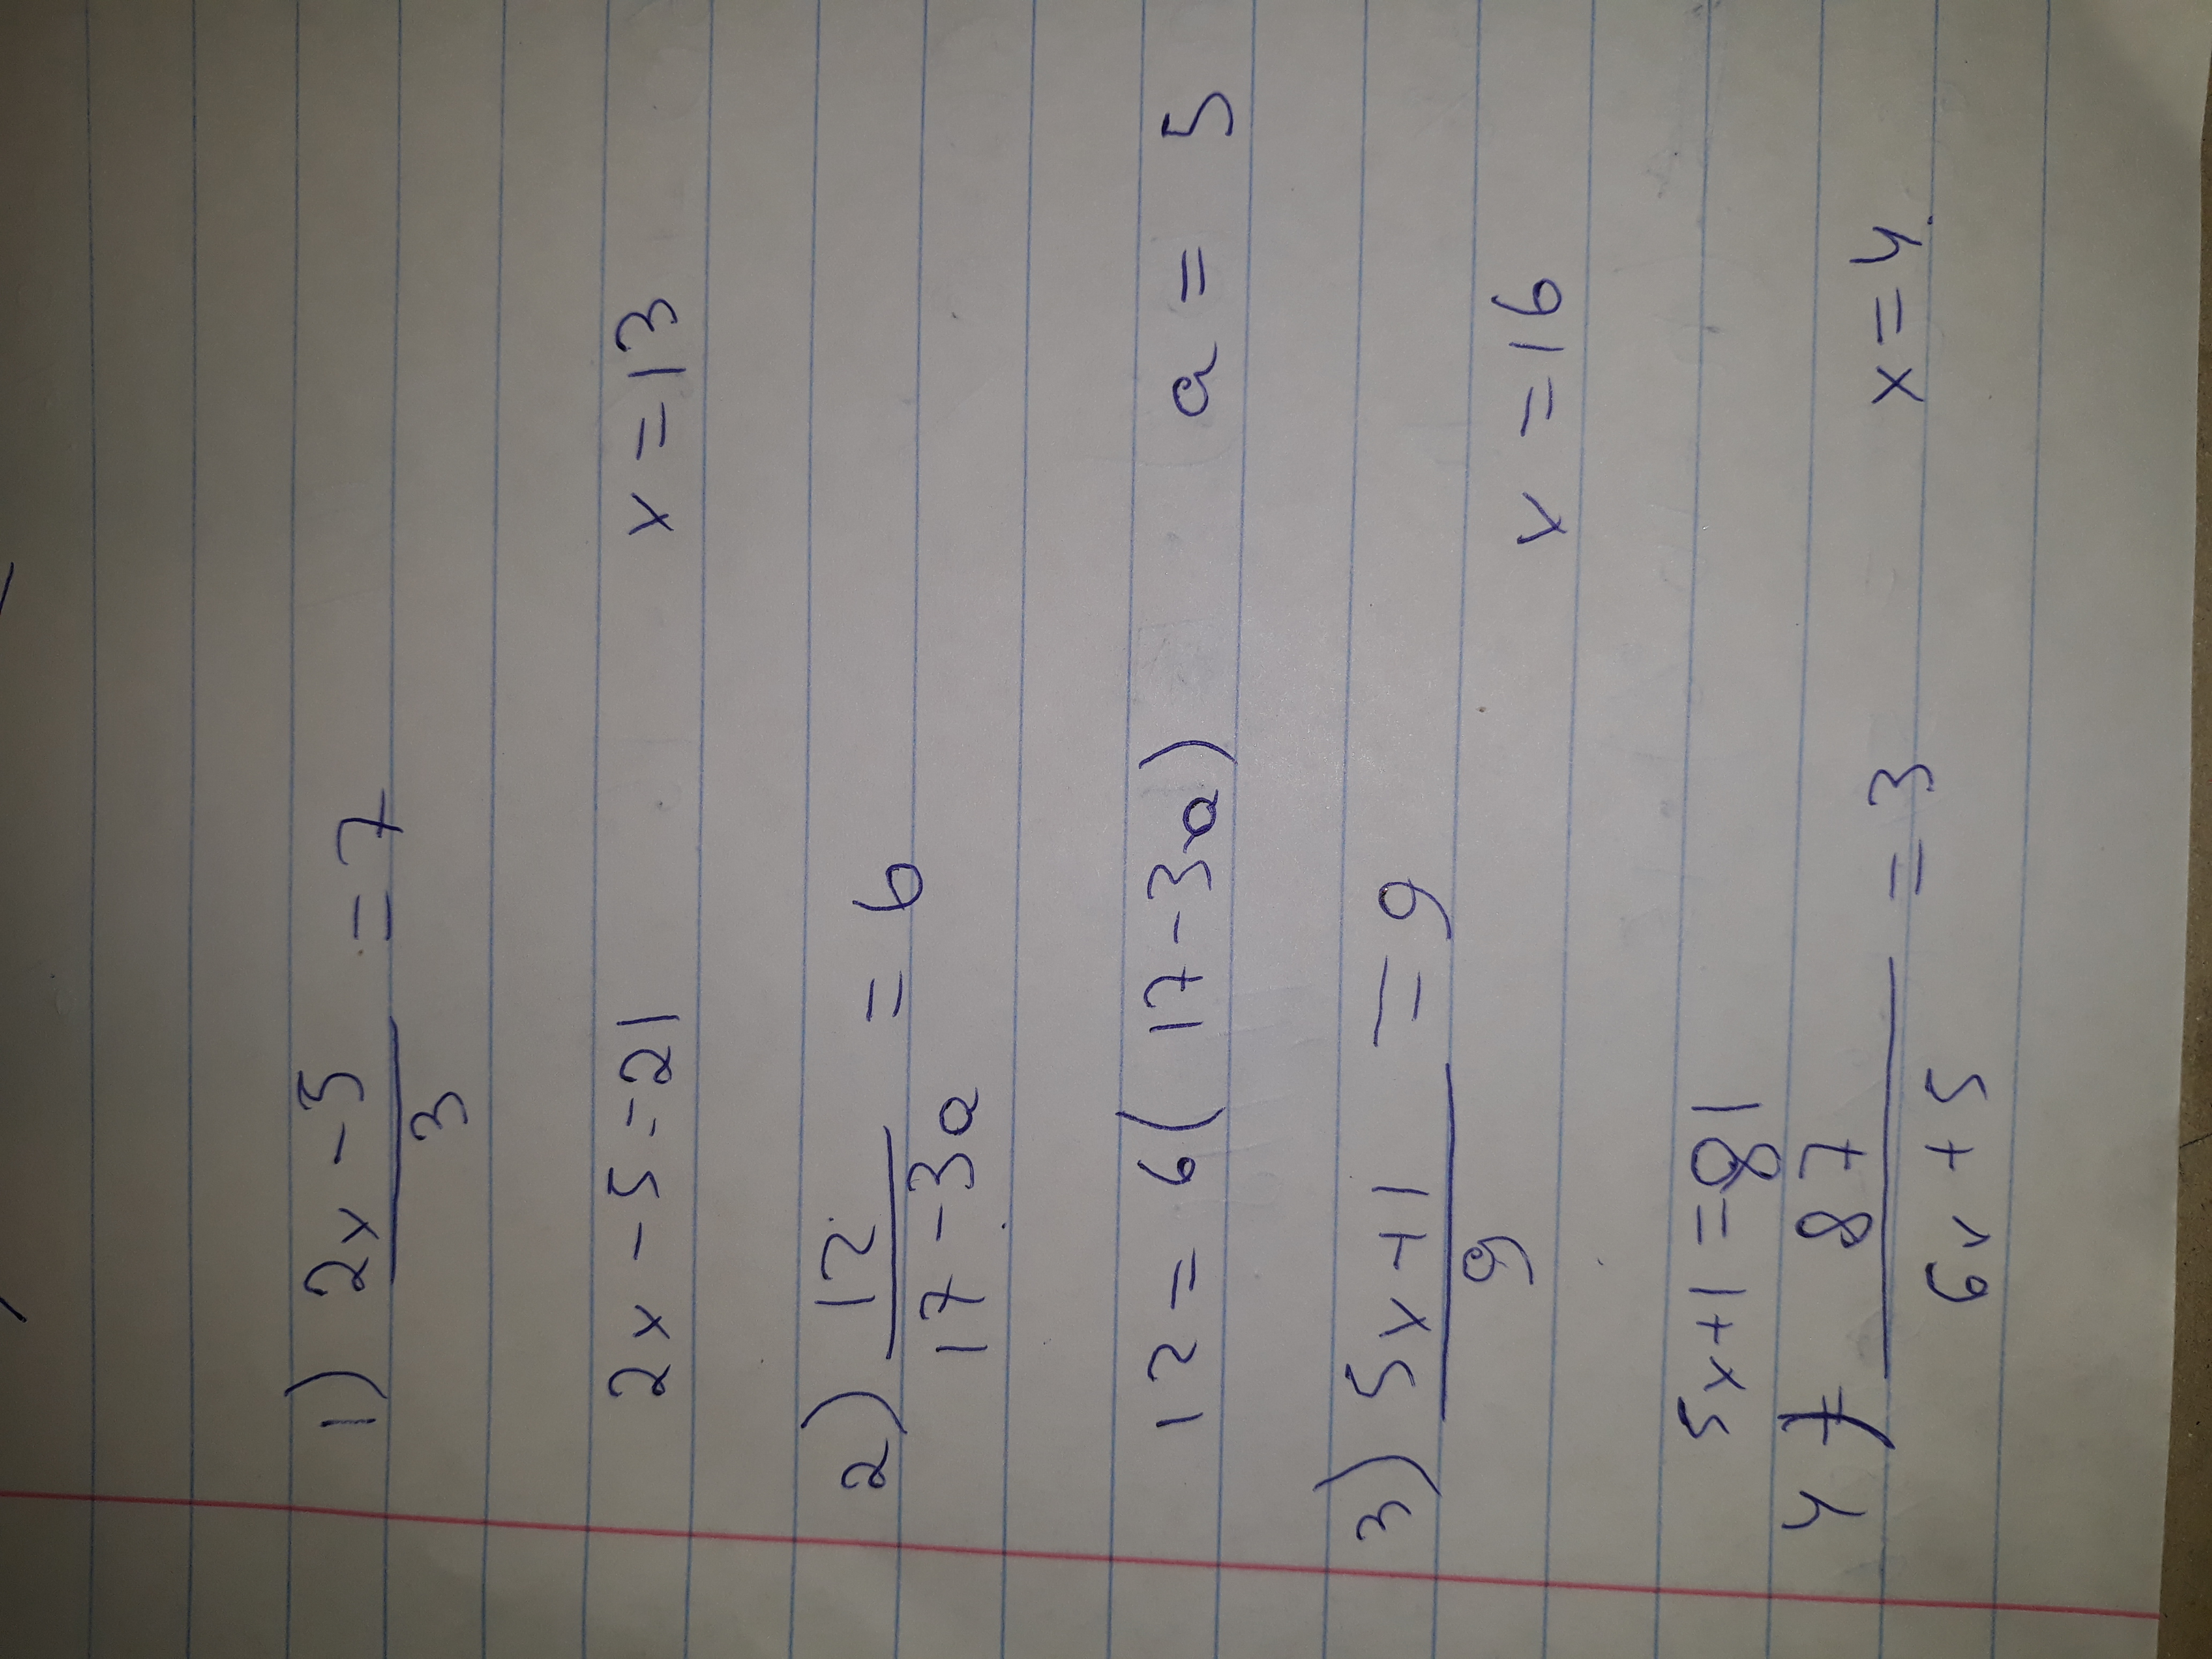 1) 2x - 5 = 7
3
2x - 5 = 21 x = 13
2) 12 = 6
17 - 3a
12 = 6(17-3a) a = 5
3) 5x+1 = 9
9
x = 16
5x+1=81
4) 87 = 3 x=4
6x+5